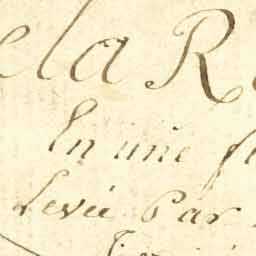 ela R
En une f
Levée Par